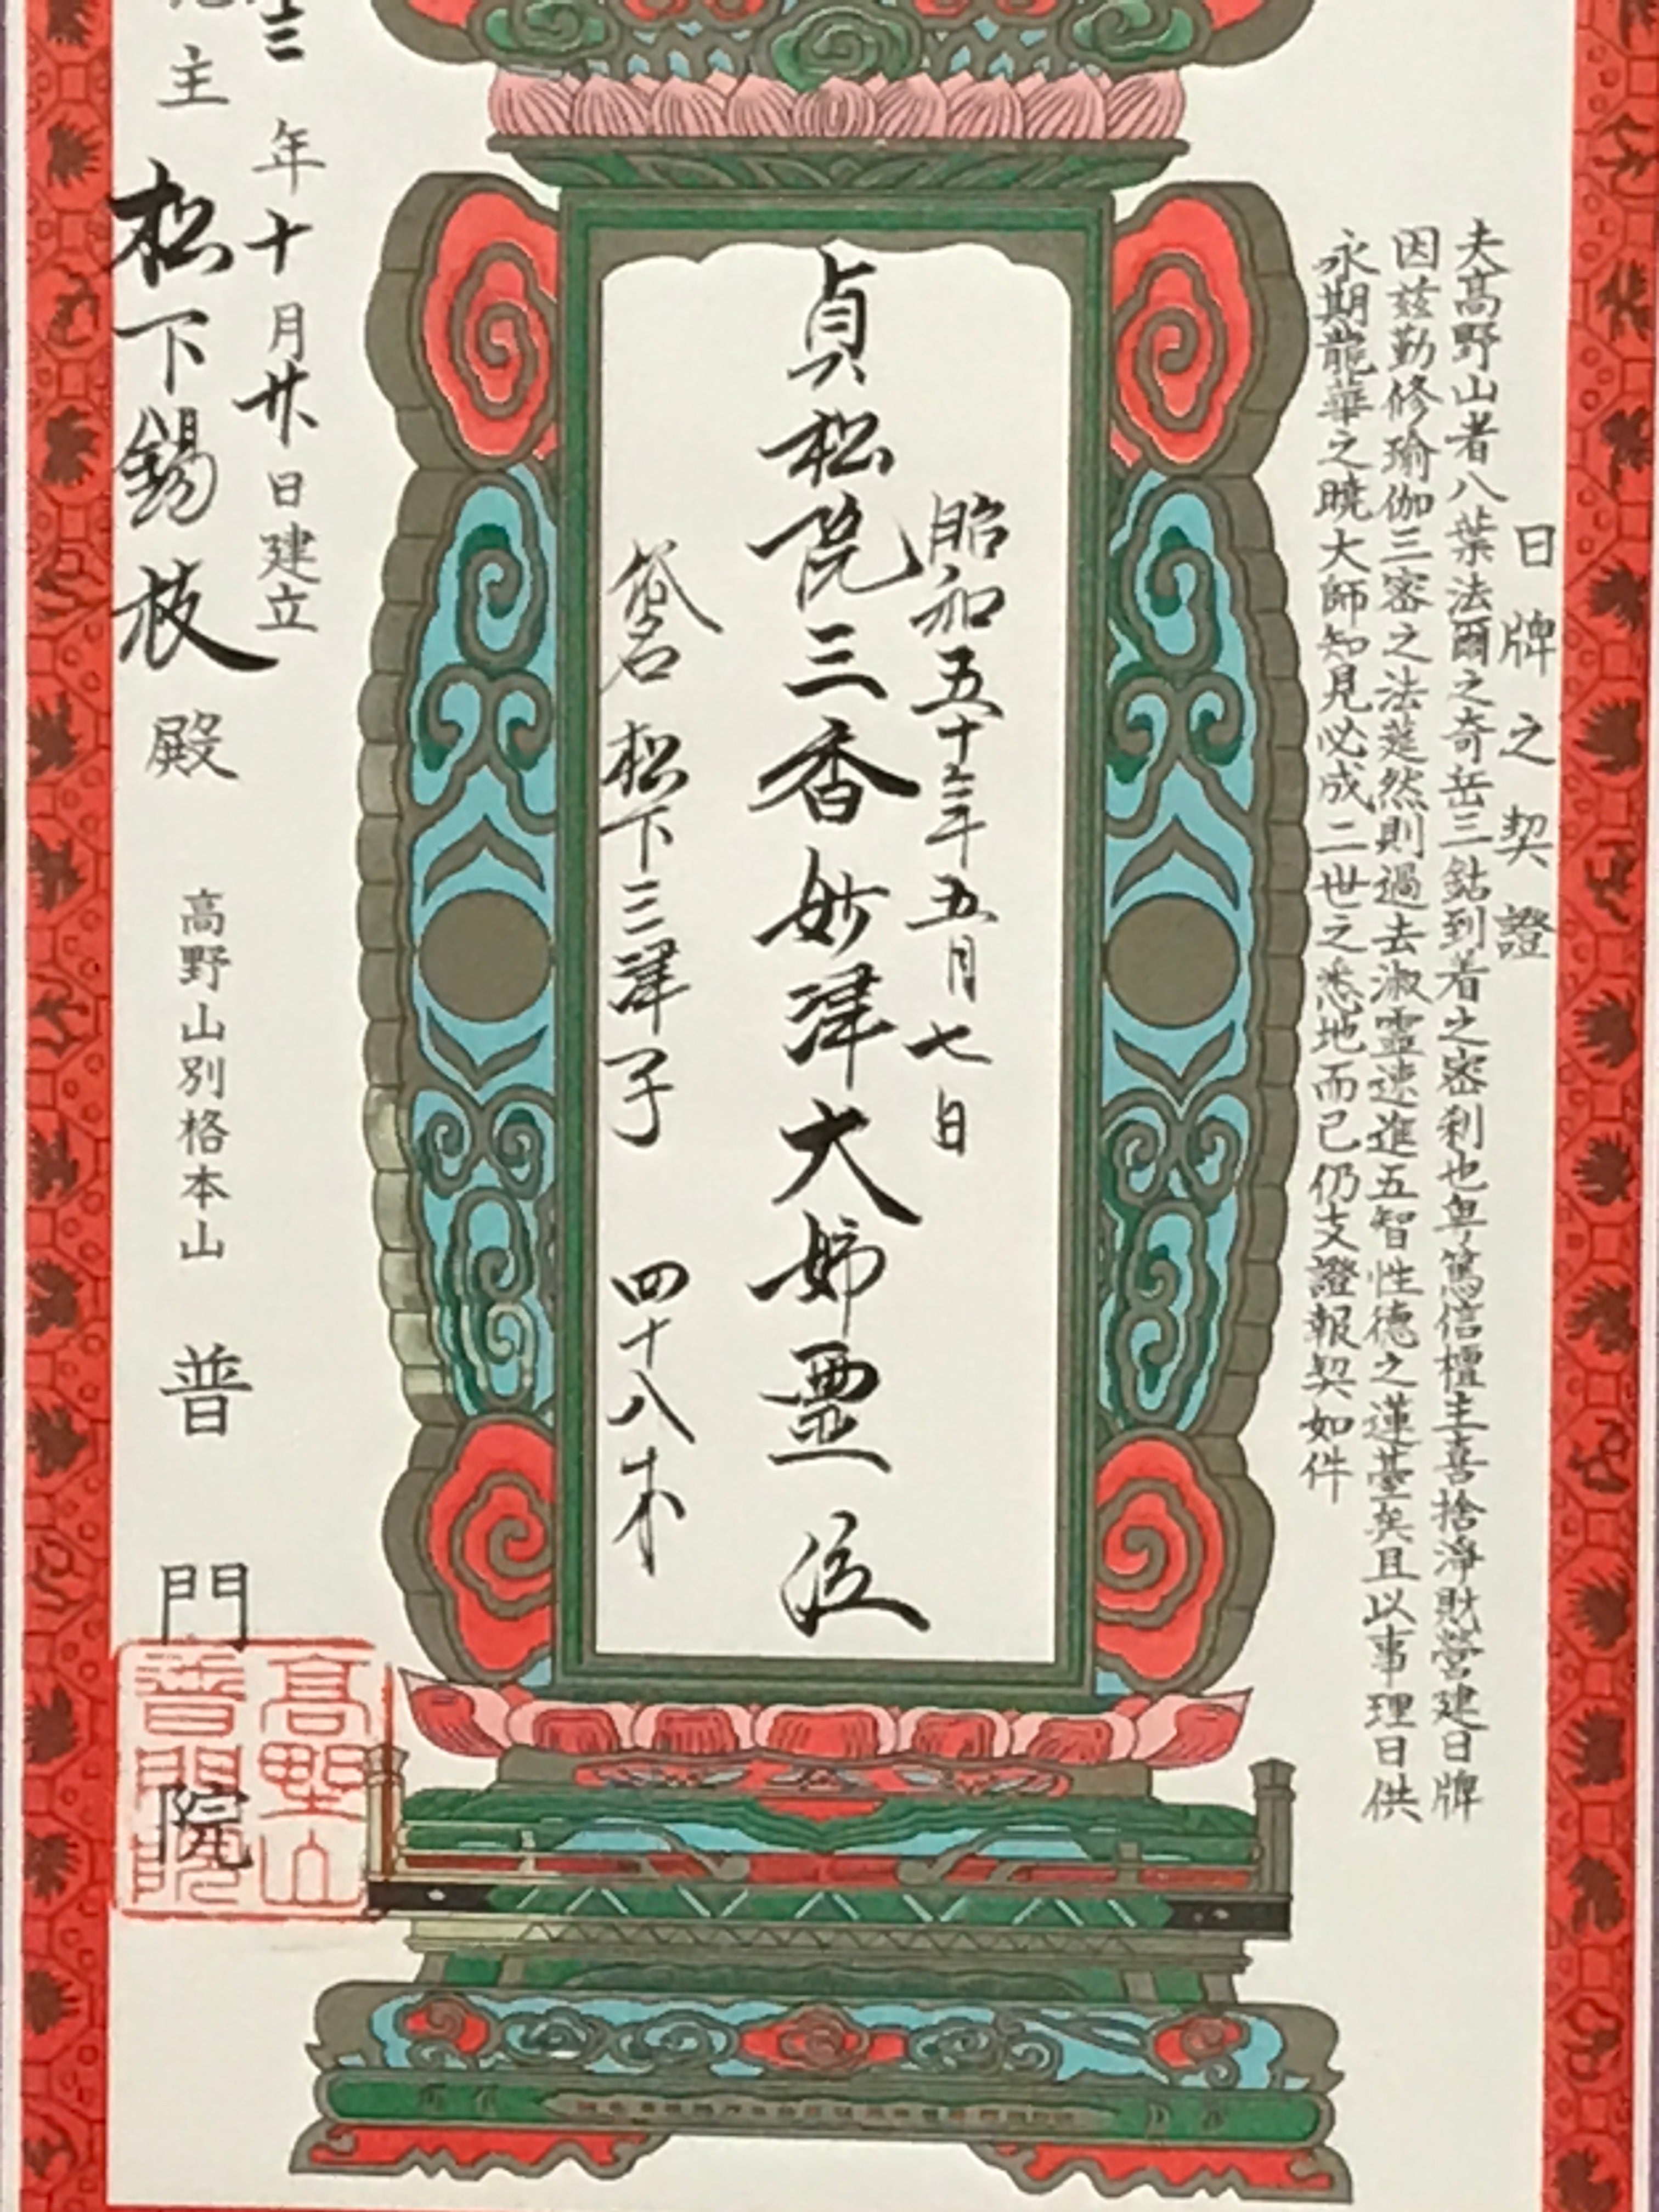 日牌之契證
夫高野山者八葉法爾之奇岳三鈷到着之密刹也粤篤信檀主喜捨淨財營建日牌
因茲勤修瑜伽三密之法莚然則過去淑靈速進五智性德之蓮臺矣且以事理日供
永期龍華之曉大師知見必成二世之悉地而已仍支證報契如件
昭和五十三年五月七日
貞松院三香妙津大姉霊位
俗名 松下三津子 四十八才
三年十月廿日建立
主 松下錫枝殿
高野山別格本山 普門院
高野山
普門院